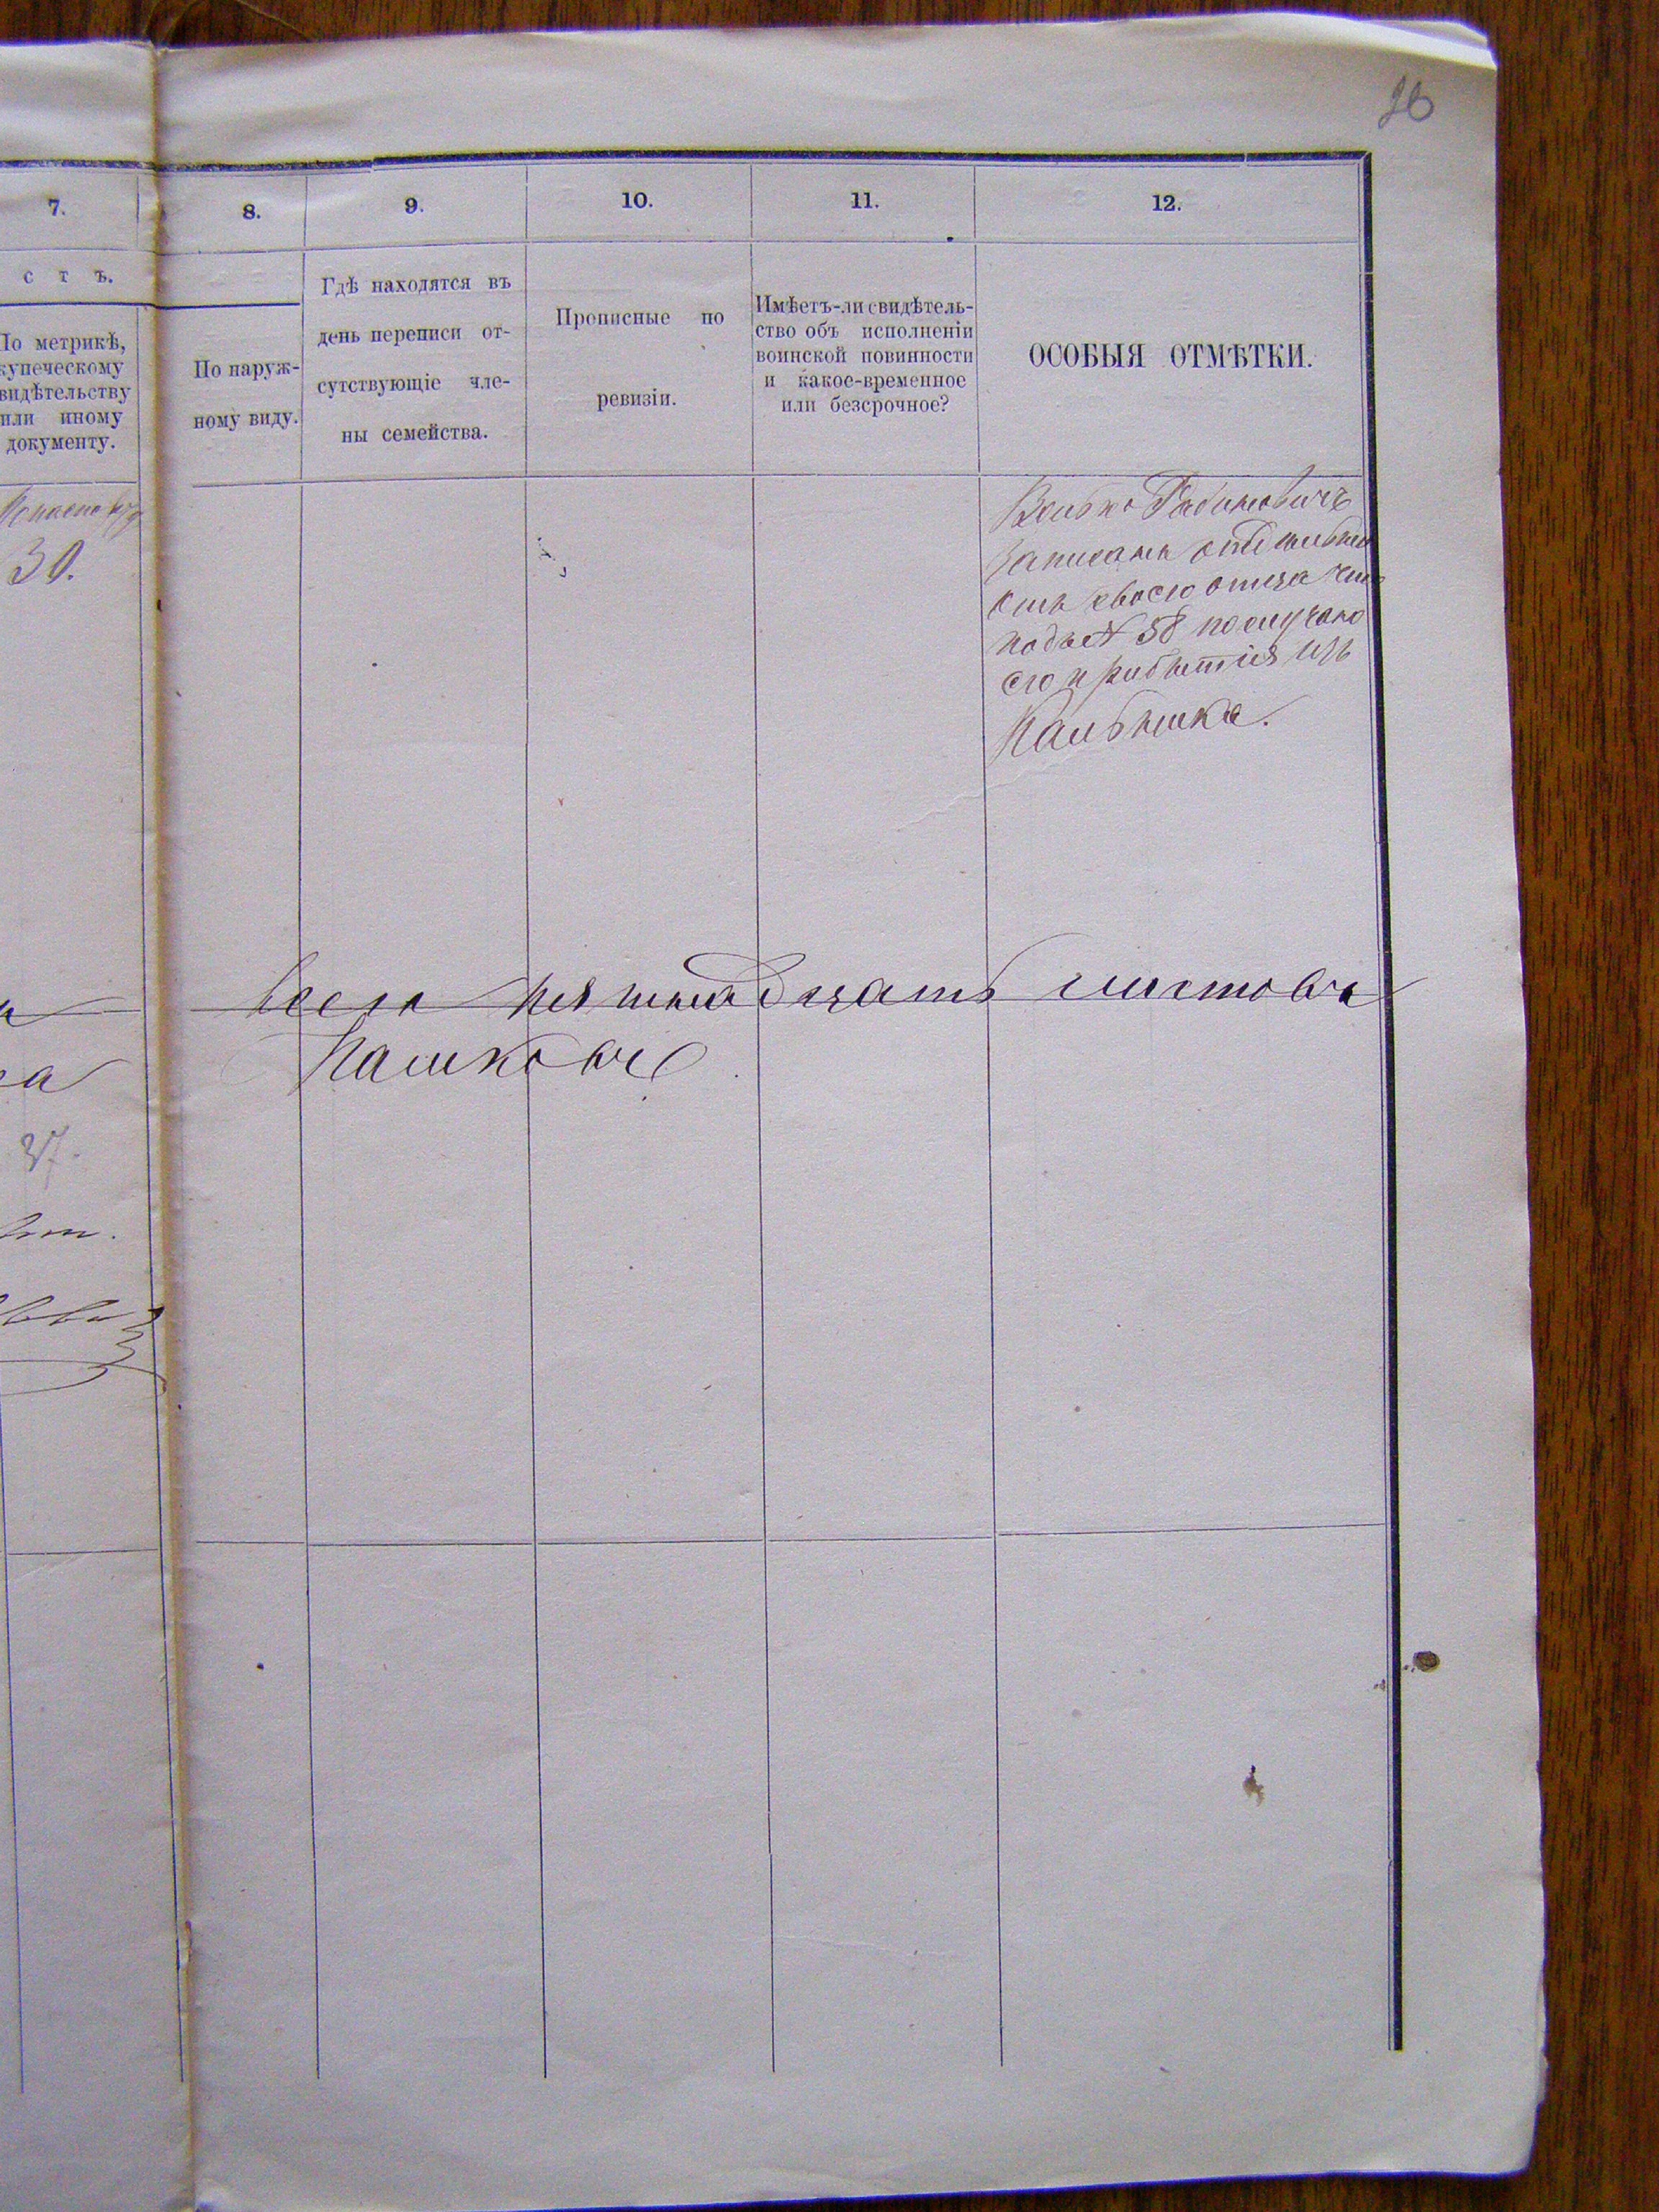 26
7. 8. 9. 10. 11. 12.
с т ъ.
По метрикѣ,
купеческому
свидѣтельству
или иному
документу.
По наруж-
ному виду.
Гдѣ находятся въ
день переписи от-
сутствующіе чле-
ны семейства.
Прописные по
ревизіи.
Имѣетъ-ли свидѣтель-
ство объ исполненіи
воинской повинности
и какое-временное
или безсрочное?
ОСОБЫЯ ОТМѢТКИ.
30.
Велько Рабиновичъ
записанъ отдѣльно
отъ своего отца
подъ № 58 по случаю
его прибытія изъ
37.
всего пятнадцать листовъ